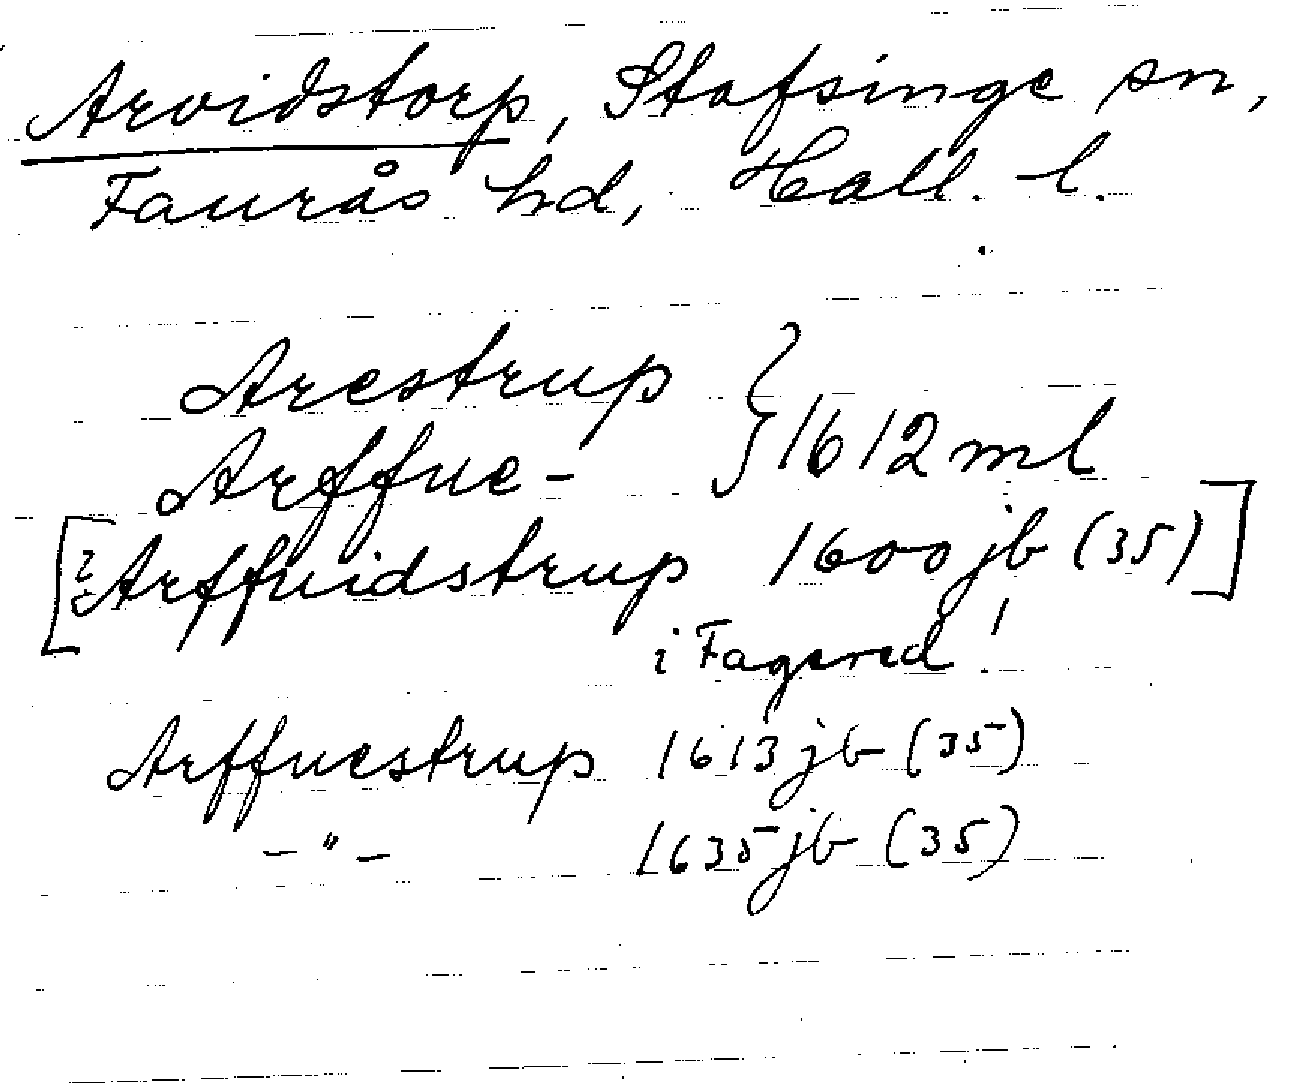 Arvidstorp, Stafsinge sn,
Faurås hd, Hall. l.
Arestrup } 1612 ml
Arffue-
[? Arffuidstrup 1600 jb (35)]
i Fagered!
Arffuestrup 1613 jb (35)
— " — 1635 jb (35)